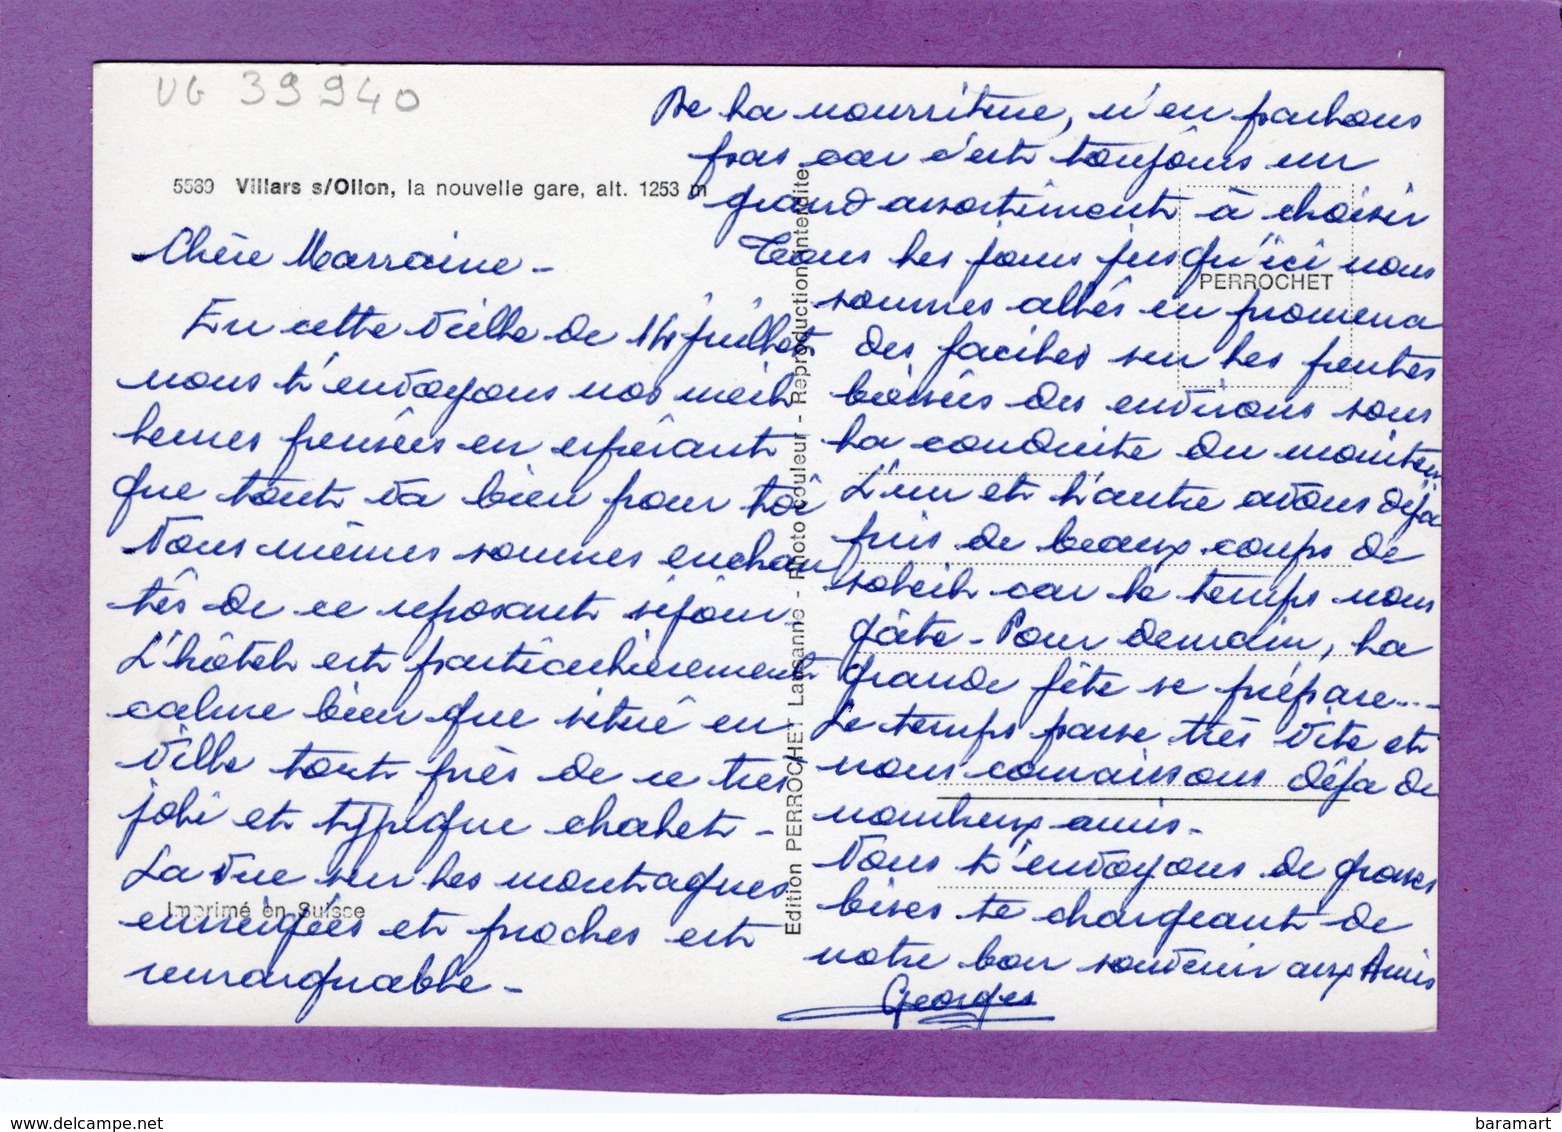 VG 39940
5539 Villars s/Ollon, la nouvelle gare, alt. 1253 m
Chère Marraine -
En cette veille de 14 juillet
nous t'envoyons nos meil
leures pensées en espérant
que tout va bien pour toi
Nous mêmes sommes enchan
tés de ce reposant séjour
L'hôtel est particulièrement
calme bien que situé en
ville tout près de ce très
joli et typique chalet -
La vue sur les montagnes
enneigées et proches est
remarquable -
Imprimé en Suisse
Edition PERROCHET Lausanne - Photo couleur - Reproduction interdite
De la nourriture, n'en parlons
pas car c'est toujours un
grand assortiment à choisir
Tous les jours jusqu'ici nous
sommes allés en promena
des faciles sur les pentes
boisées des environs sous
la conduite du moniteur
L'un et l'autre avons déjà
pris de beaux coups de
soleil car le temps nous
gâte - Pour demain, la
grande fête se prépare...
Le temps passe très vite et
nous connaissons déja de
nombreux amis -
Nous t'envoyons de grosses
bises te chargeant de
notre bon souvenir aux Amis
Georges
PERROCHET
delcampe.net
baramart